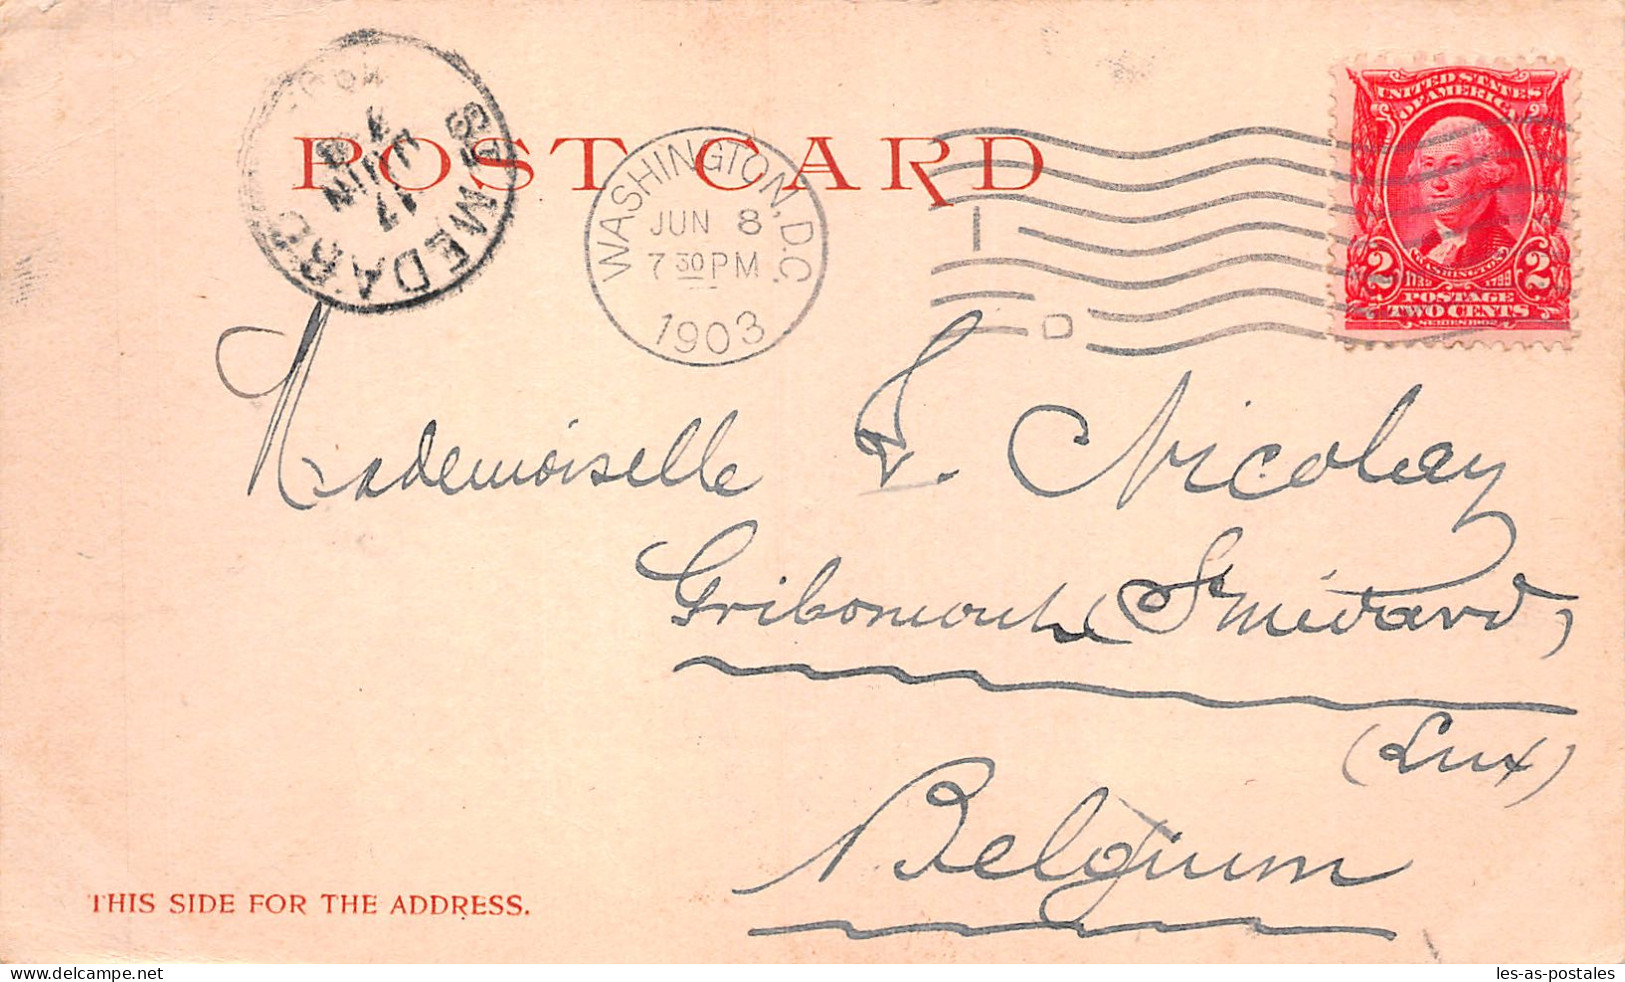 POST CARD
ST MEDARD
17
JUIN
WASHINGTON, D.C.
JUN 8
7 30 PM
1903
UNITED STATES
OF AMERICA
WASHINGTON
1732 1799
2 2
POSTAGE
TWO CENTS
SERIES 1902
D
Mademoiselle F. Nicolay
Gribomont (St Médard)
(Lux)
Belgium
THIS SIDE FOR THE ADDRESS.
delcampe.net
les-as-postales